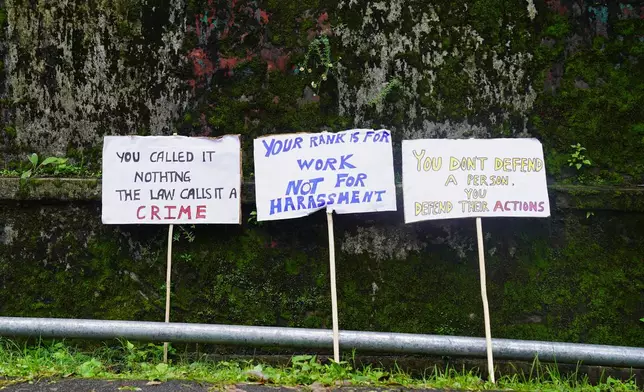 YOU CALLED IT
NOTHING
THE LAW CALLS IT A
CRIME
YOUR RANK IS FOR
WORK
NOT FOR
HARASSMENT
YOU DON'T DEFEND
A PERSON.
YOU
DEFEND THEIR ACTIONS